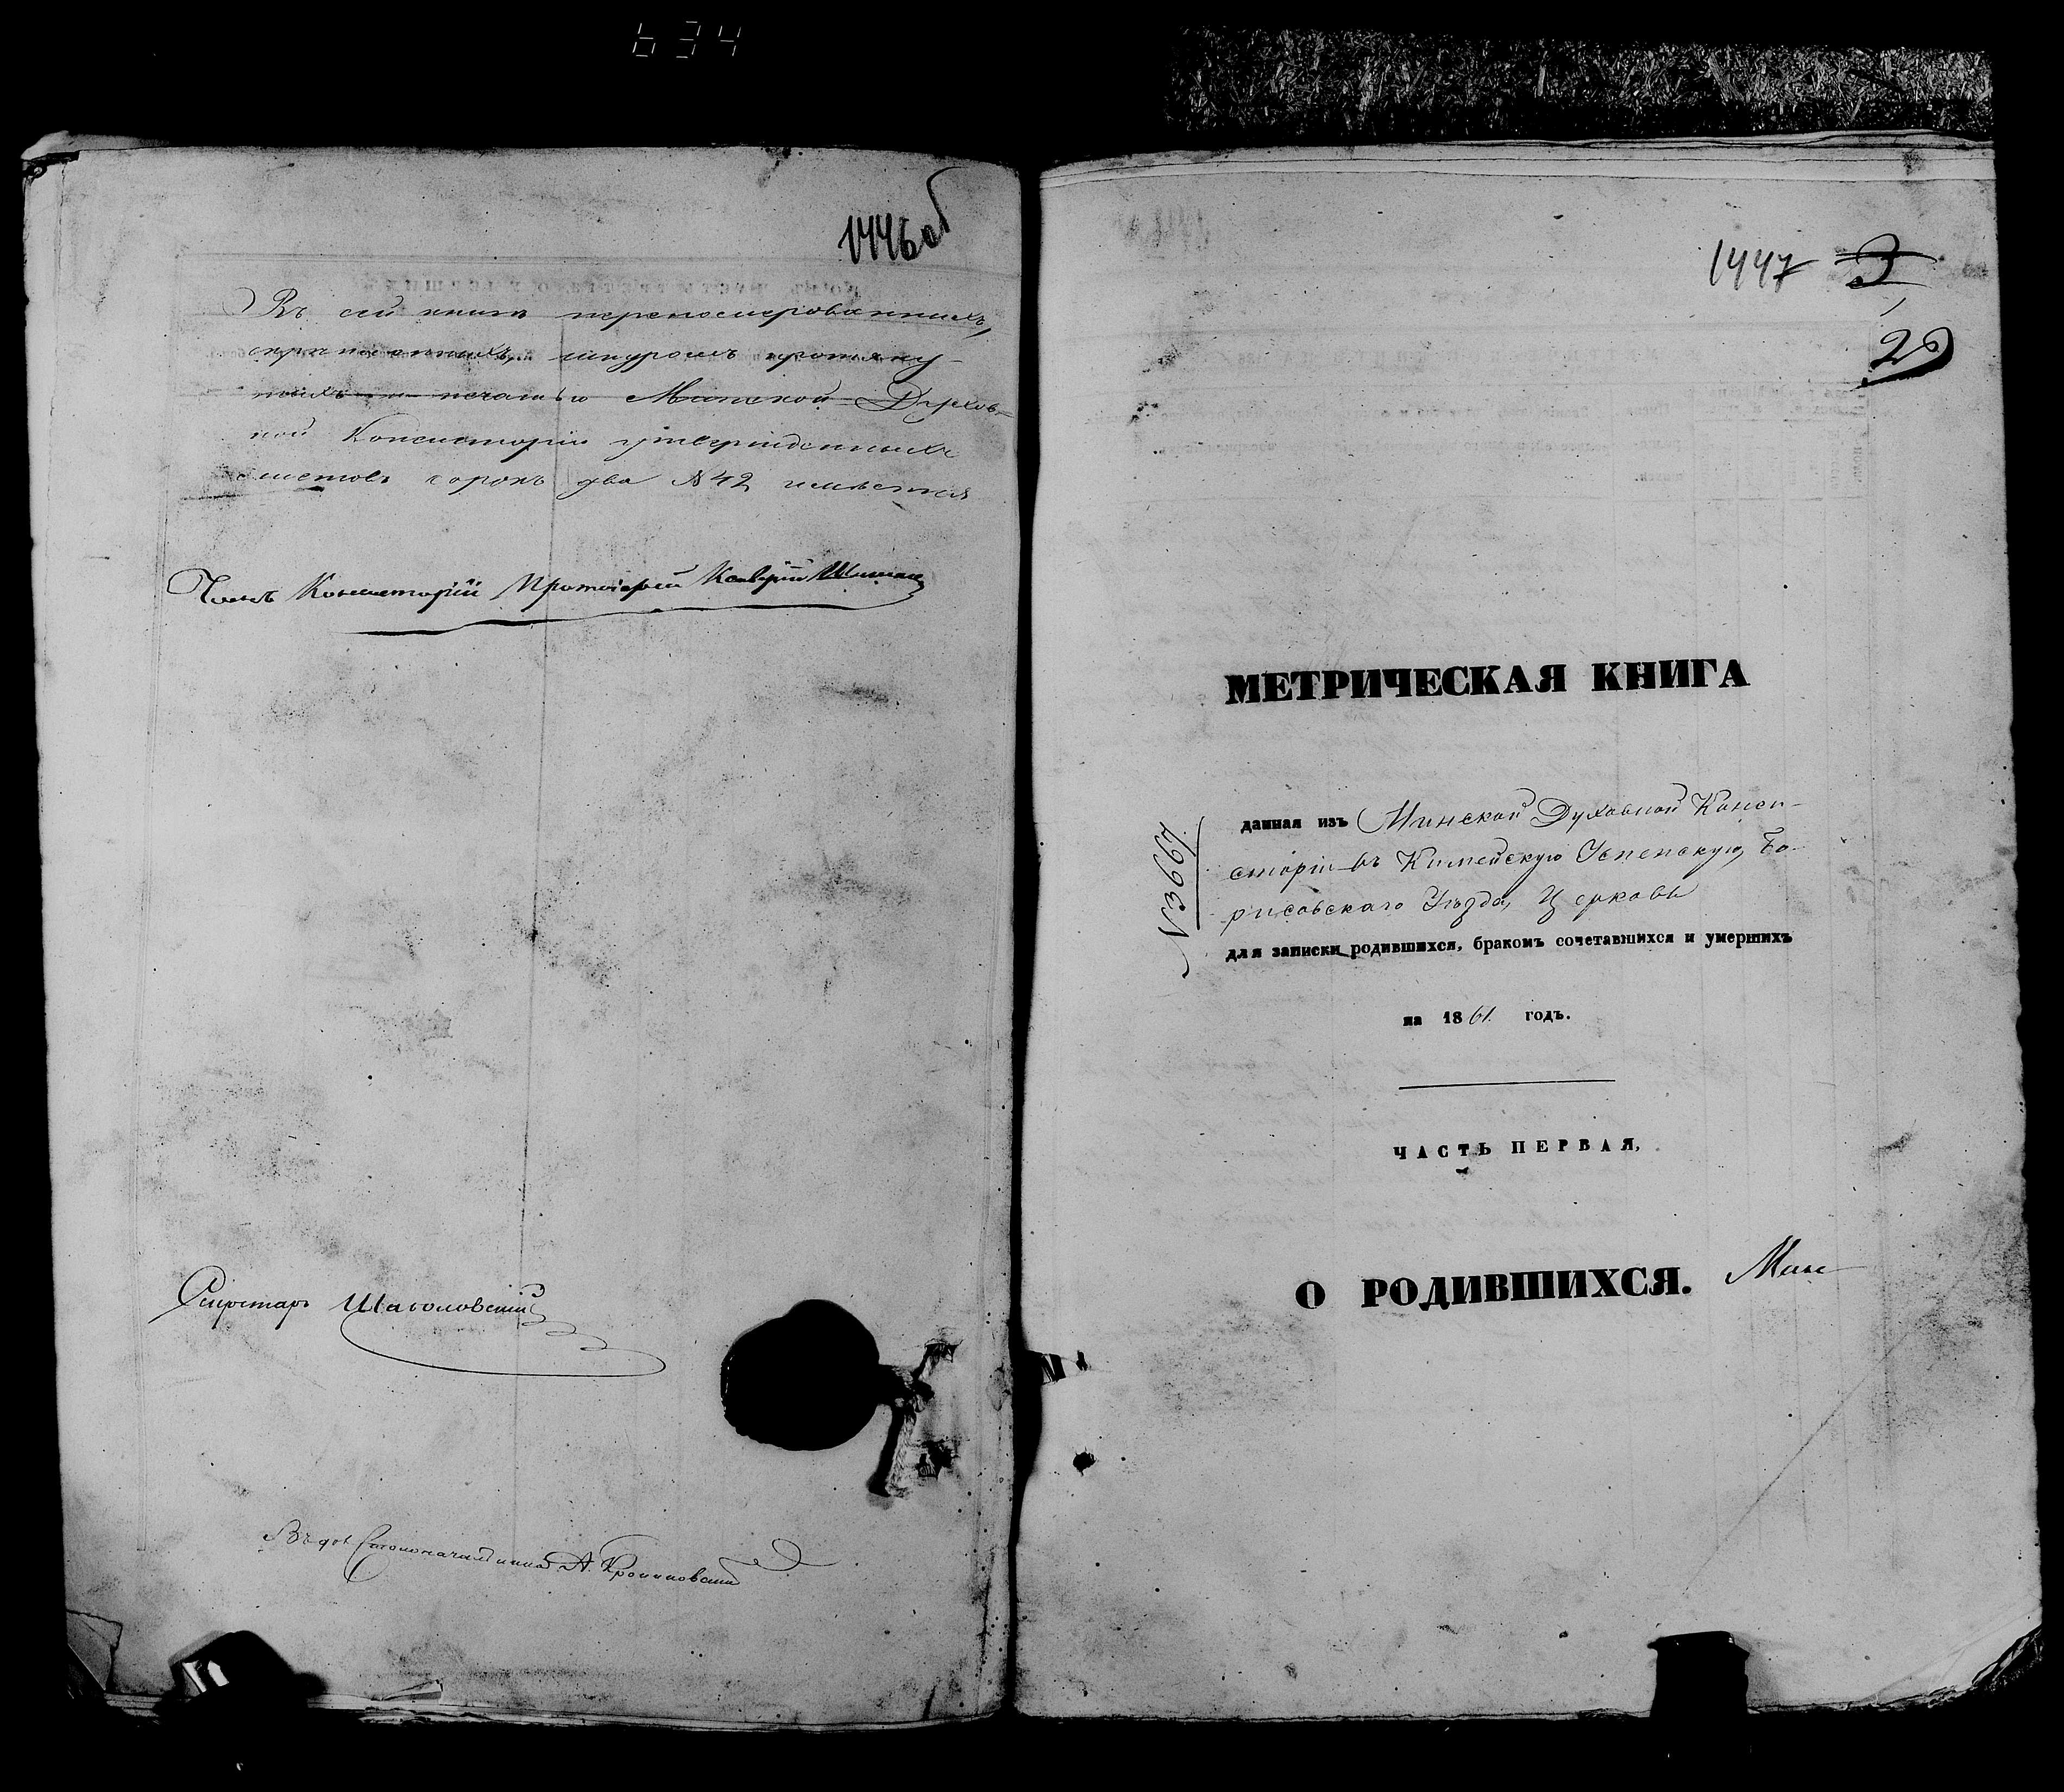 634
1446 об
Въ сей книгѣ перенумерованныхъ,
скрѣпленныхъ, шнуромъ протяну-
тыхъ и печатью Минской Духов-
ной Консисторіи утвержденныхъ
листовъ сорокъ два № 42 имѣется
Членъ Консисторіи Протоіерей
Секретарь
Столоначальника А.
1447 3
2
МЕТРИЧЕСКАЯ КНИГА
№ 3667
данная изъ Минской Духовной Конси-
сторіи въ Кимейскую Успенскую, Бо-
рисовскаго Уѣзда, Церковь
для записки родившихся, бракомъ сочетавшихся и умершихъ
на 1861 годъ.
ЧАСТЬ ПЕРВАЯ,
О РОДИВШИХСЯ. Мин